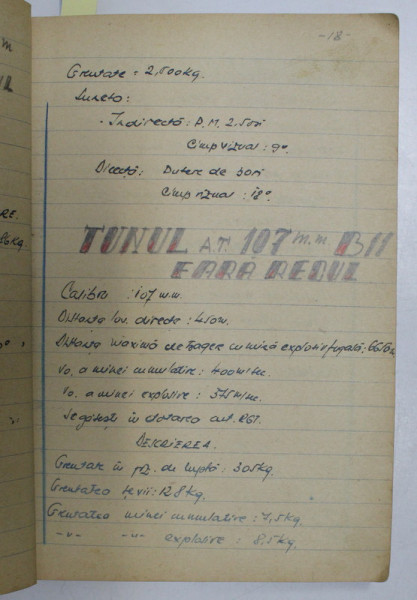 -18-
Greutate = 2,500kg.
Luneta:
- Indirectă: P.M. 2.5ori
Cîmp vizual: 9°.
Directă: Putere de 5ori
Cîmp vizual: 18°.
TUNUL A.T. 107 m.m B11
FARA RECUL
Calibru : 107 m.m.
Distanta lov. directe : 450m.
Distanta maximă de tragere cu mină explozivă : 6650m
Vo. a minei cumulative : 400m/sec.
Vo. a minei explosive : 375m/sec.
Se găsește în dotarea RGT.
DESCRIEREA.
Greutate în poz. de luptă : 305kg.
Greutatea țevii: 128kg.
Greutatea minei cumulative : 7,5kg.
-"- -"- explosive : 8,5kg.
m
RE.